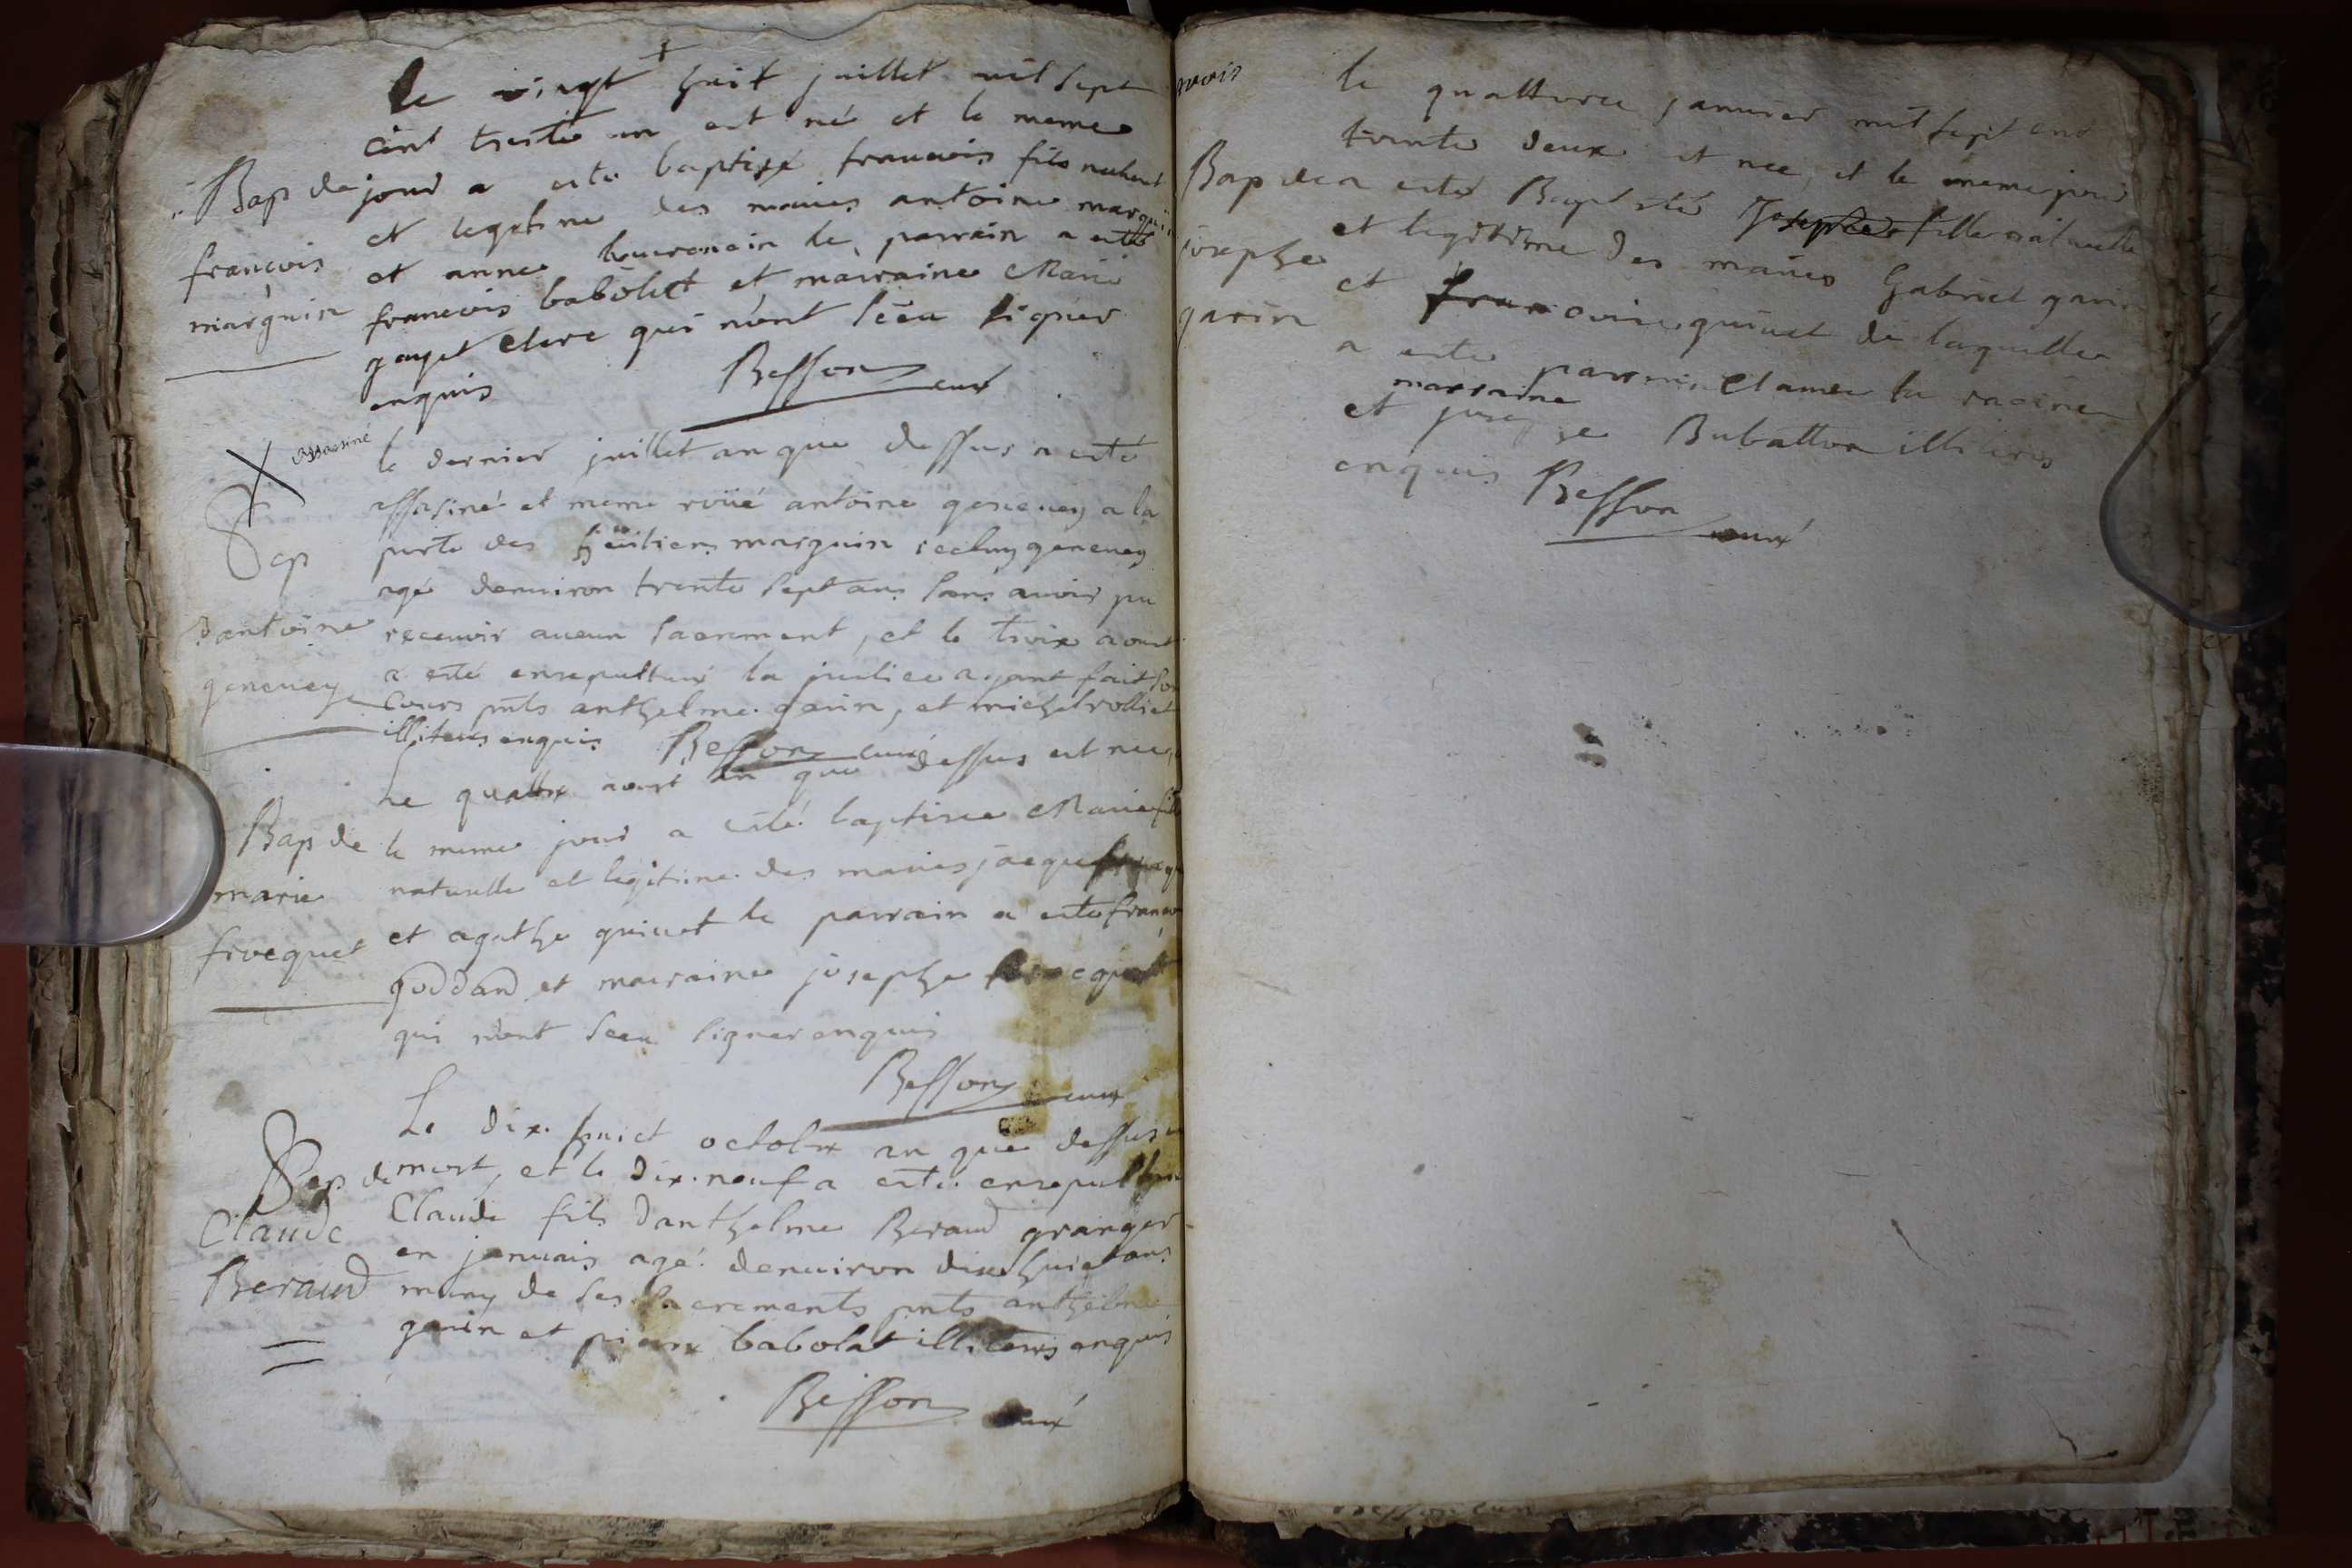 Le vingt huit juillet mil sept
cent trente un est né et le meme
Bap de jour a esté baptizé francois fils naturel
et legitime des maries antoine marguin
francois et anne le parrain a esté
marguin francois babolat et marraine Marie
gayet Clerc qui n'ont sceu signer
enquis Besson curé
assasiné
le dernier juillet an que dessus a esté
assasiné et meme roüé antoine geneuey a la
Sep porte des heritiers marguin geneuey
agé denuiron trente sept ans sans auoir pu
dantoine receuoir aucun sacrement, et le troix aoust
geneuey a esté ensepulturé la justice ayant fait son
cours pnts anthelme garin, et michel rolliet
illiteres enquis Besson curé
Le quattre aoust an que dessus est nee,
Bap de le meme jour a esté baptisee Marie fille
marie naturelle et legitime des maries jacque
frocquet et agathe quinet le parrain a esté francois
goddard et marraine josephe frocquet
qui n'ont sceu signer enquis
Besson curé
Le dix huict octobre an que dessus est
Sep de mort, et le dix neuf a esté ensepulturé
Claude Claude fils danthelme Beraud granger
en januais agé denuiron dix huict ans
Beraud muny de ses sacrements pnts anthelme
garin et pierre babolat illiteres enquis
Besson curé
le quattorze januier mil sept cent
trente deux est nee, et le meme jour
Bap de a esté Baptisée Josephe fille naturelle
josephe et legitime des maries Gabriel garin
garin et francoise quinet de laquelle
a esté parrain Clamer la racine
marraine
et josephe Babattou illiteres
enquis Besson curé